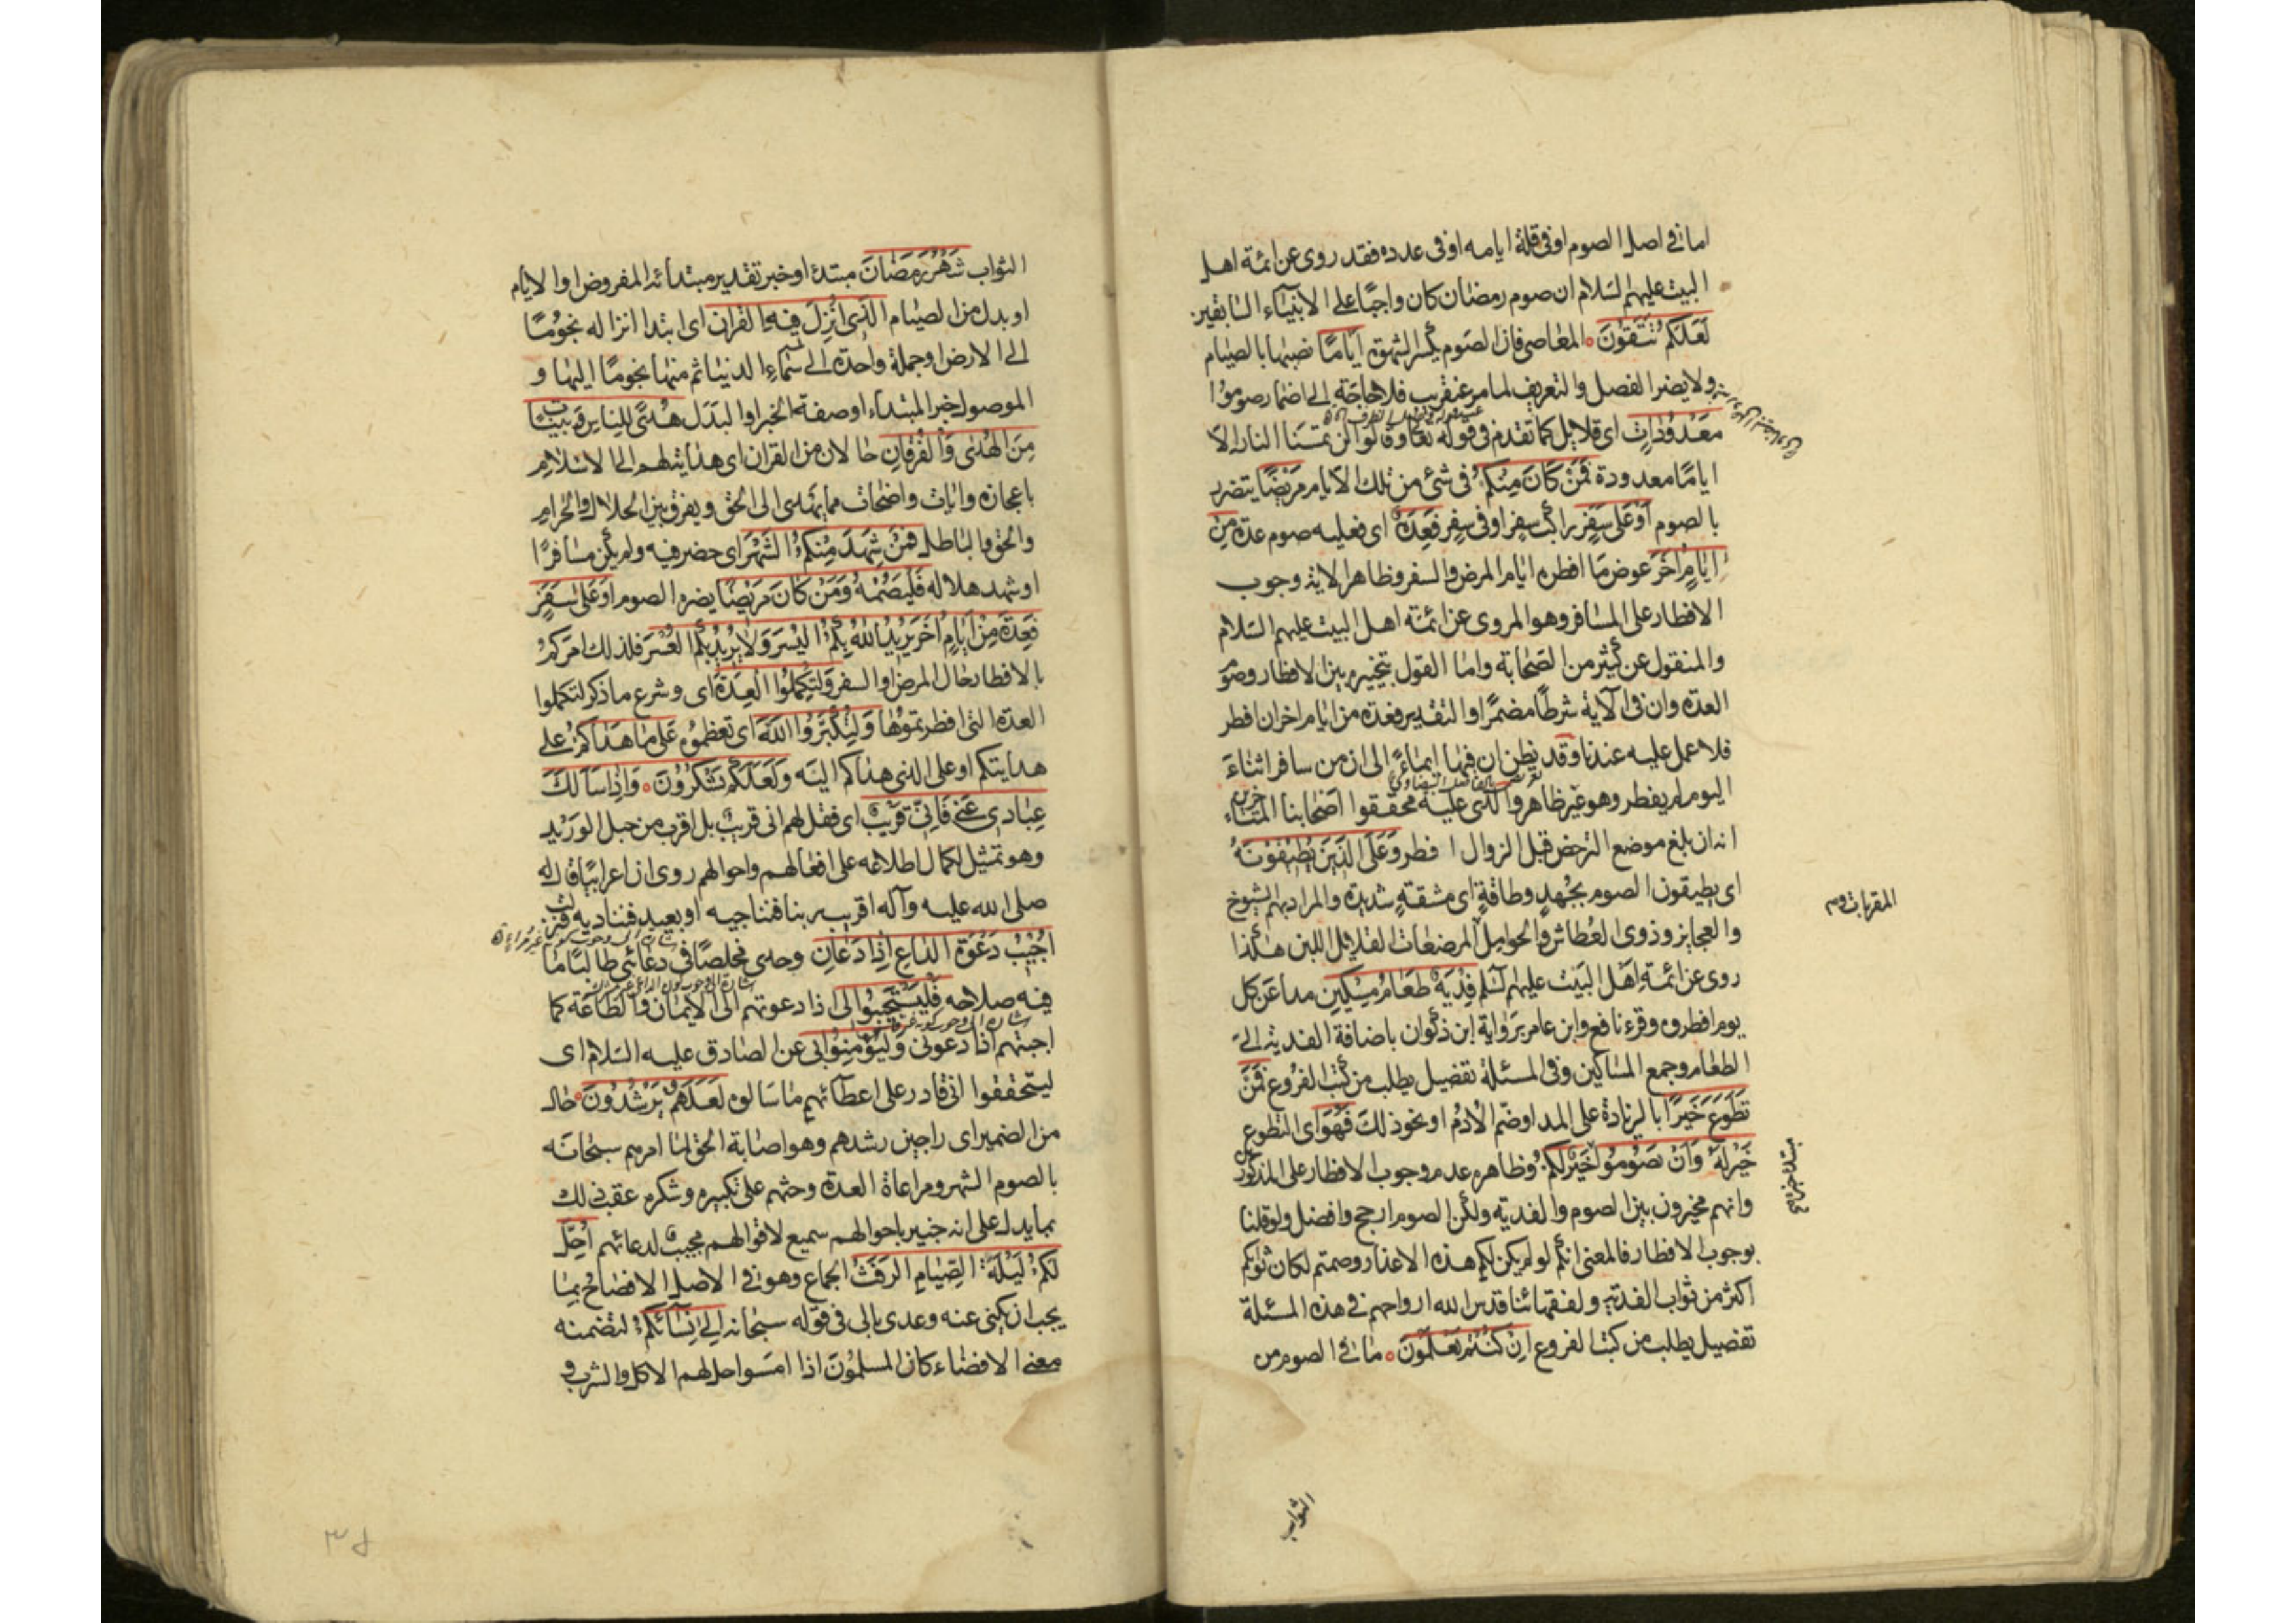 اما فى اصل الصوم او فى قلة ايامه او فى عدده فقد روى عن ائمة اهل
البيت عليهم السلام ان صوم رمضان كان واجبًا على الانبيآء السابقين
لَعَلَّكُمْ تَتَّقُونَ المعاصى فان الصوم يكسر الشهوة اَيَّامًا نصبها بالصيام
ولا يضر الفصل والتعريف لما مر عنقريب فلا حاجة الى اضمار صوموا
مَعْدُودَاتٍ اى قلايل كما تقدم فى قوله تعا وقالوا لن تمسَنا النار الا
ايامًا معدودة فَمَنْ كَانَ مِنْكُمْ فى شئ من تلك الايام مَرِيضًا يتضرر
بالصوم اَوْ عَلٰى سَفَرٍ راكب سفر او فى سفر فَعِدَّةٌ اى فعليه صوم عدة مِنْ
اَيَّامٍ اُخَرَ عوض ما افطره ايام المرض والسفر وظاهر الاية وجوب
الافطار على المسافر وهو المروى عن ائمة اهل البيت عليهم السلام
والمنقول عن كثير من الصحابة واما القول بتخييره بين الافطار وصوم
العدة وان فى الآية شرطًا مضمرًا والتقدير فعدة من ايام اخر ان افطر
فلا عمل عليه عندنا وقد يظن ان فيها ايماءً الى ان من سافر اثناءَ
اليوم لم يفطر وهو غير ظاهر والذى عليه محققوا اصحابنا المتاخرين
انه ان بلغ موضع الترخص قبل الزوال افطر وَعَلَى الَّذِينَ يُطِيقُونَهُ
اى يطيقون الصوم بجُهدٍ وطاقةٍ اى مشقةٍ شديدة والمراد بهم الشيوخ
والعجايز وذوى العُطاش والحوامل المرضعات القلايل اللبن هكذا
روى عن ائمة اهل البيت عليهم السلم فِدْيَةٌ طَعَامُ مِسْكِينٍ مد عن كل
يوم افطروه وقرء نافع وابن عامر برواية ابن ذكوان باضافة الفدية الى
الطعام وجمع المساكين وفى المسئلة تفصيل يطلب من كتب الفروع فَمَنْ
تَطَوَّعَ خَيْرًا بالزيادة على المد او ضم الاُدم او نحو ذلك فَهُوَ اى التطوع
خَيْرٌ لَهُ وَاَنْ تَصُومُوا خَيْرٌ لَكُمْ وظاهره عدم وجوب الافطار على المذكورين
وانهم مخيرون بين الصوم والفدية ولكن الصوم ارجح وافضل ولو قلنا
بوجوب الافطار فالمعنى انكم لو لم يكن لكم هذه الاعذار وصمتم لكان ثوابكم
اكثر من ثواب الفدية ولفقهائنا قدس الله ارواحهم فى هذه المسئلة
تفصيل يطلب من كتب الفروع اِنْ كُنْتُمْ تَعْلَمُونَ ما فى الصوم من
الثواب
الثواب شَهْرُ رَمَضَانَ مبتدء او خبر تقدير مبتدائه المفروض او الايام
او بدل من الصيام الَّذِى اُنْزِلَ فِيهِ الْقُرْاٰنُ اى ابتدا انزاله نجومًا
الى الارض او جملة واحدة الى سماء الدنيا ثم منها نجومًا اليها و
الموصول خبر المبتداء او صفة الخبر او البدل هُدًى لِلنَّاسِ وَبَيِّنَاتٍ
مِنَ الْهُدٰى وَالْفُرْقَانِ حالان من القران اى هداية لهم الى الاسلام
باعجازه وايات واضحات مما يَهدى الى الحق ويفرق بين الحلال والحرام
والحق والباطل فَمَنْ شَهِدَ مِنْكُمُ الشَّهْرَ اى حضر فيه ولم يكن مسافرًا
او شهد هلاله فَلْيَصُمْهُ وَمَنْ كَانَ مَرِيضًا يضره الصوم اَوْ عَلٰى سَفَرٍ
فَعِدَّةٌ مِنْ اَيَّامٍ اُخَرَ يُرِيدُ اللّٰهُ بِكُمُ الْيُسْرَ وَلَا يُرِيدُ بِكُمُ الْعُسْرَ فلذلك امركم
بالافطار حال المرض او السفر وَلِتُكْمِلُوا الْعِدَّةَ اى وشرع ما ذكر لتكملوا
العدة التى افطرتموها وَلِتُكَبِّرُوا اللّٰهَ اى تعظموه عَلٰى مَا هَدٰاكُمْ على
هدايتكم او على الذى هداكم اليه وَلَعَلَّكُمْ تَشْكُرُونَ وَاِذَا سَاَلَكَ
عِبَادِى عَنِّى فَاِنِّى قَرِيبٌ اى فقل لهم انى قريب بل اقرب من حبل الوريد
وهو تمثيل لكمال اطلاعه على افعالهم واحوالهم روى ان اعرابيًا قال له
صلى الله عليه وآله اقريب ربنا فنناجيه او بعيد فنناديه فنزلت
اُجِيبُ دَعْوَةَ الدَّاعِ اِذَا دَعَانِ وحدى مخلصًا فى دعائى طالبًا ما
فيه صلاحه فَلْيَسْتَجِيبُوا لِى اذا دعوتهم الى الايمان والطاعة كما
اجبتهم اذا دعونى وَلْيُؤْمِنُوا بِى عن الصادق عليه السلام اى
ليتحققوا انى قادر على اعطائهم ما سالوه لَعَلَّهُمْ يَرْشُدُونَ حال
من الضمير اى راجين رشدهم وهو اصابة الحق لما امرهم سبحانه
بالصوم الشهر ومراعاة العدة وحثهم على تكبيره وشكره عقب ذلك
بما يدل على انه خبير باحوالهم سميع لاقوالهم مجيب لدعائهم اُحِلَّ
لَكُمْ لَيْلَةَ الصِّيَامِ الرَّفَثُ الجماع وهو فى الاصل الافصاح بما
يجب ان يكنى عنه وعدى بالى فى قوله سبحانه اِلٰى نِسَآئِكُمْ لتضمنه
معنى الافضاء كان المسلمون اذا امسوا حل لهم الاكل والشرب و